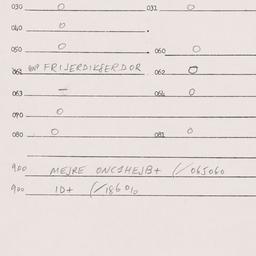 030 O 031 O
040 O
050 O 060 O
061 FRIJERDIKSERDOR 062 O
063 — 064 O
070 O
080 O 081 O
900 MEJRE ONC1HEJB+ (/065060
900 ID+ (/186010